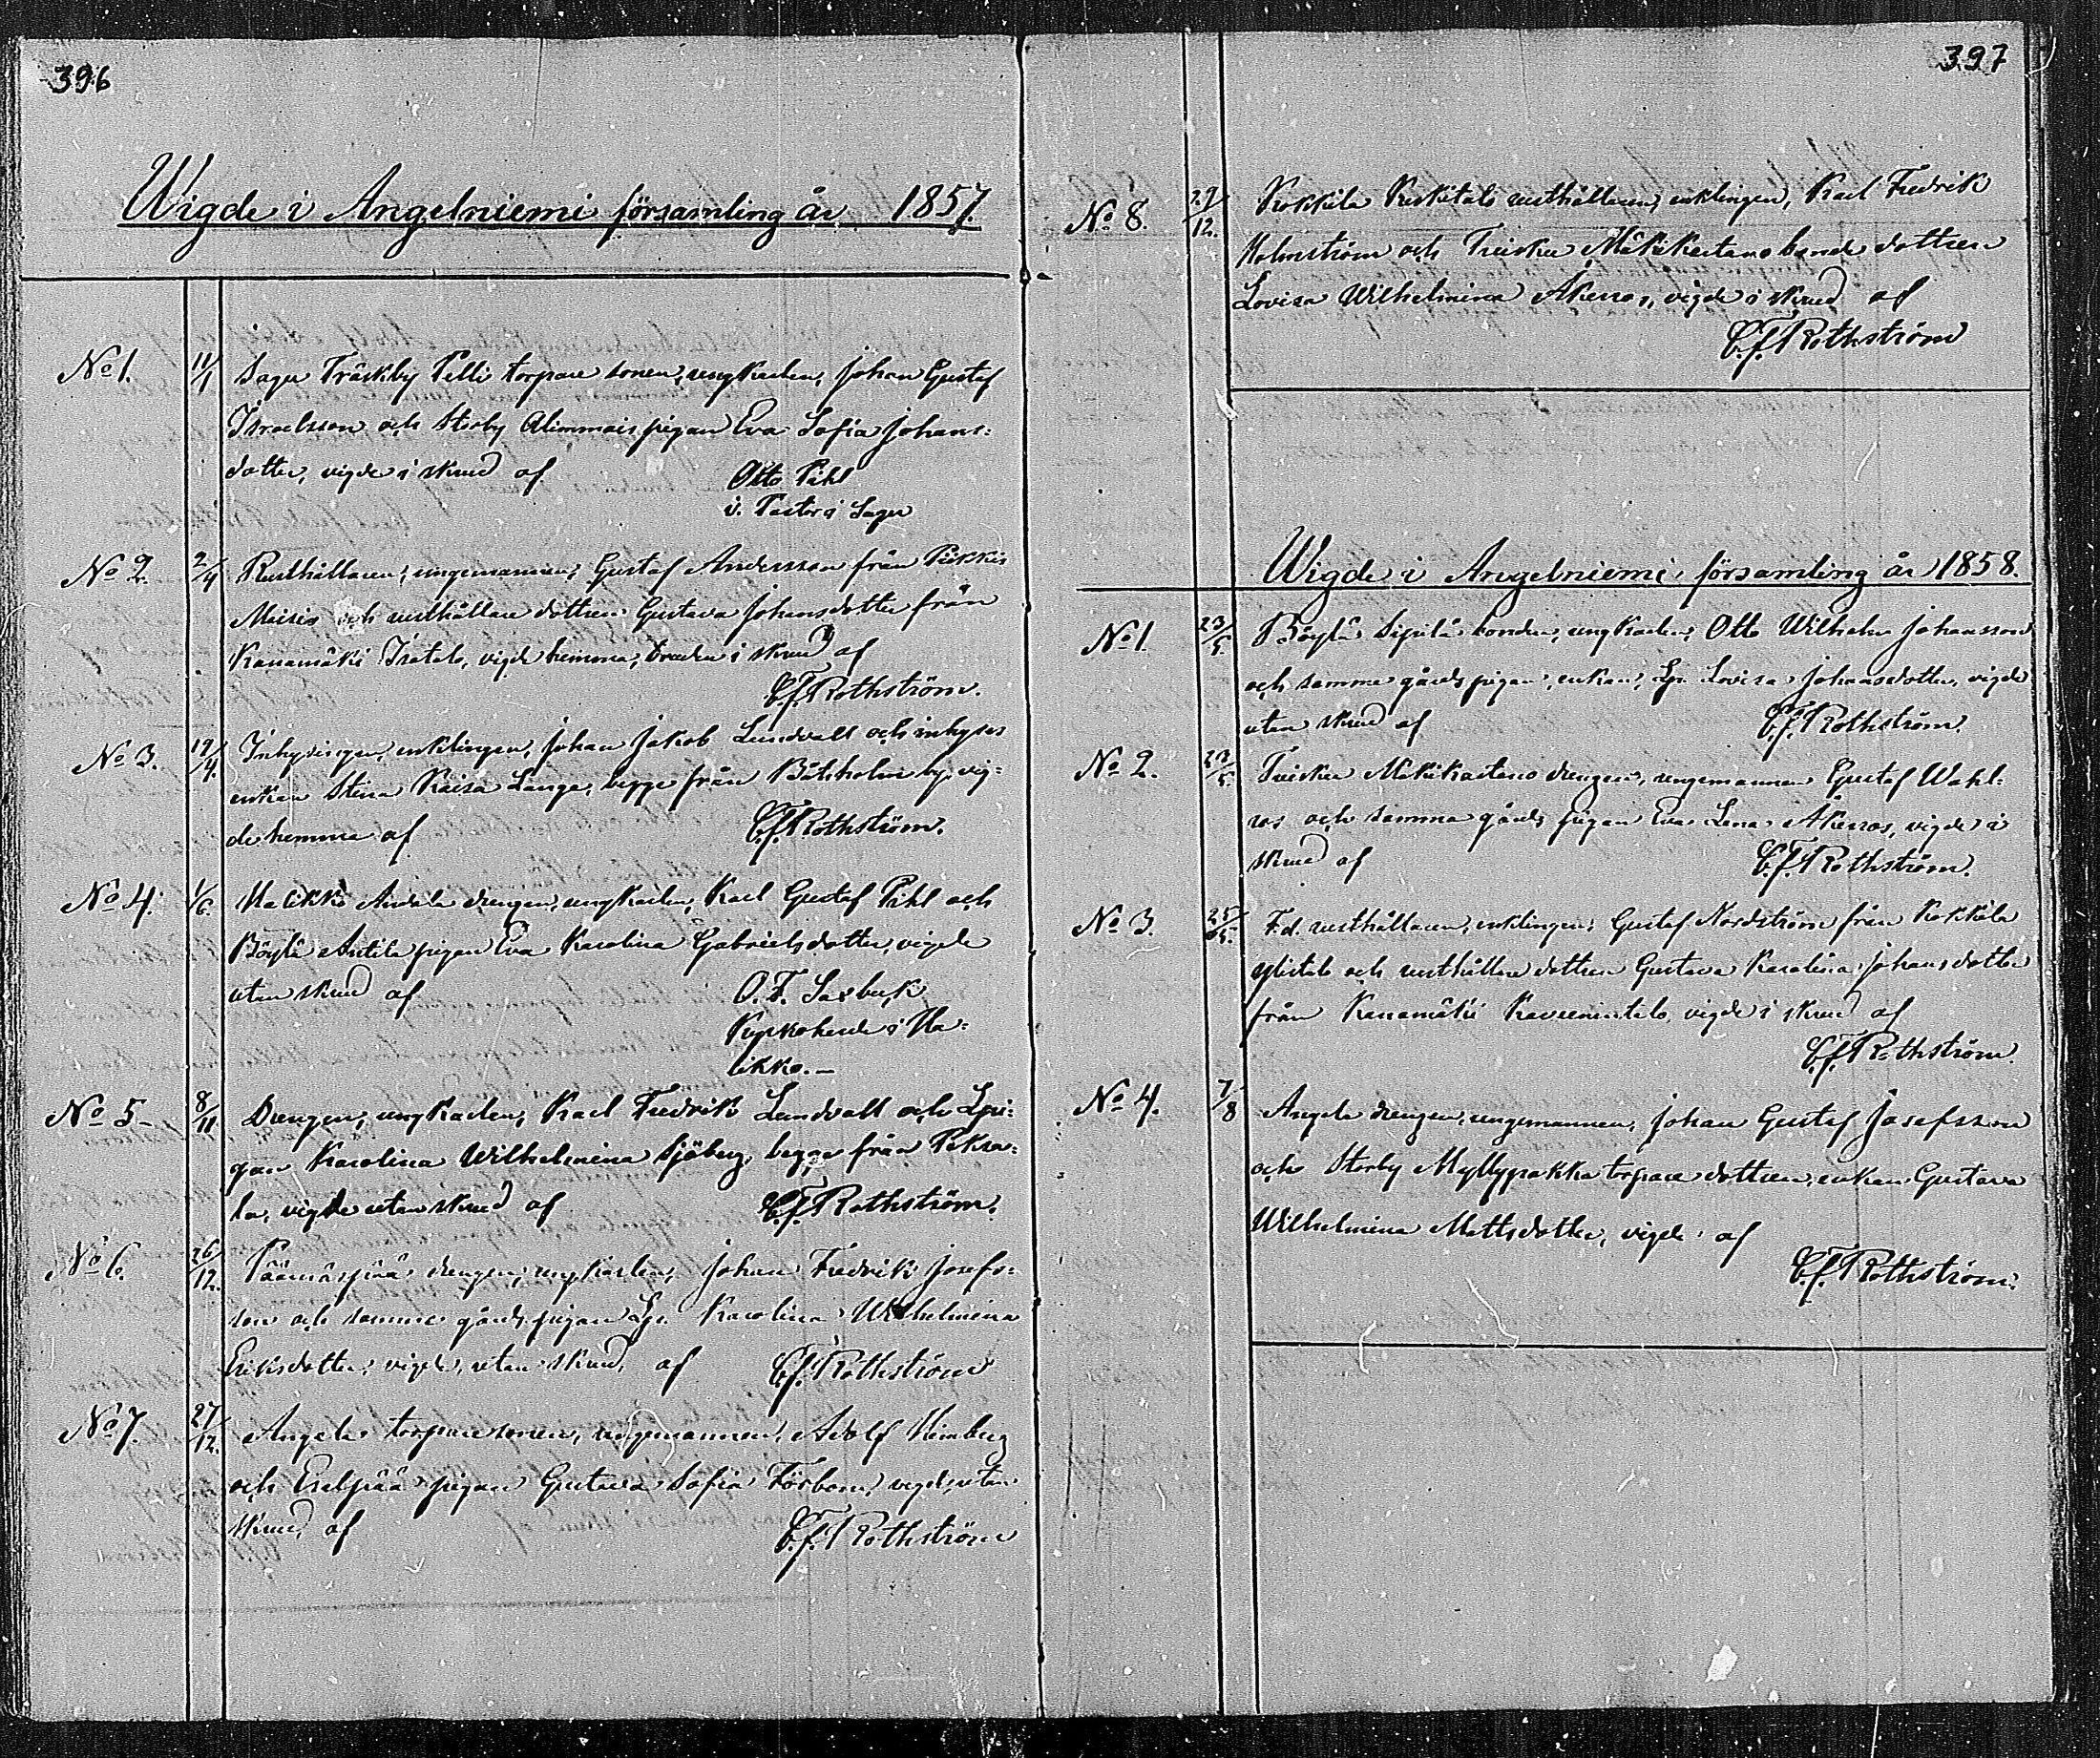 396
Wigde i Angelniemi församling år 1857.
No 1. 11/1 Sagu Träskby Pelli torpare sonen, ungkarlen, Johan Gustaf
Israelsson och Storby Alimmais pigan Eva Sofia Johans-
dotter, vigde i skrud af Otto Pihl
v. Pastor i Sagu
No 2. 2/4 Rusthållaren, ungemannen, Gustaf Andersson från Piikkis
Moisio och rusthållare dottren Gustava Johansdotter från
Kanamäki Isotalo, vigde hemma, bruden i skrud af
C.f. Rothström.
No 3. 19/4. Inhysingen, enklingen, Johan Jakob Lundvall och inhyses
enkan Stina Kaisa Lange, begge från Båtsholm by, vig-
de hemma af C.f. Rothström.
No 4. 1/6. Halikko Andala drengen, ungkarlen, Karl Gustaf Pihl och
Böylä Antila pigan Eva Karolina Gabrielsdotter, vigde
utan skrud af O. F. Saxbeck
Kyrkoherde i Ha-
likko.-
No 5- 8/11 Drengen, ungkarlen, Karl Fredrik Lundvall och Lpi-
gan Karolina Wilhelmina Sjöberg, begge från Peksa-
la, vigde utan skrud af C.f. Rothström.
No 6. 26/12. Päärnäspää drengen, ungkarlen, Johan Fredrik Josefs-
son och samma gårds pigan Lp. Karolina Wilhelmina
Eriksdotter, vigde, utan skrud, af C.f. Rothström
No 7. 27/12. Angela torpare sonen, ungemannen, Adolf Heinberg
och Eselpää pigan Gustava Sofia Forsbom, vigde, utan
skrud, af C.f. Rothström
397
No 8. 27/12. Kokkila Keskitalo rusthållaren, enklingen, Karl Fredrik
Holmström och Tuiskula Mäkikartano bonde dottren
Lovisa Wilhelmina Åkerros, vigde i skrud af
C.f. Rothström
Wigde i Angelniemi församling år 1858.
No 1. 23/5. Böylä Sipilä bonden, ungkarlen, Otto Wilhelm Johansson
och samma gårds pigan, enkan, Lp. Lovisa Johansdotter, vigde
utan skrud af C.f. Rothström.
No 2. 23/5. Mäkikartano drengen, ungemannen Gustaf Wahl-
ros och samma gårds pigan Eva Lena Åkerros, vigde i
skrud af C.f. Rothström.
No 3. 25/5. F.d. rusthållaren, enklingen, Gustaf Nordström från Kokkila
Ylistalo och rusthållare dottren Gustava Karolina Johansdotter
från Kanamäki, vigde i skrud af
C.f. Rothström.
No 4. 7/8 Angela drengen, ungemannen, Johan Gustaf Josefsson
och Storby Myllypakka torpare dottren, enkan Gustava
Wilhelmina Mattsdotter, vigde af
C.f. Rothström.